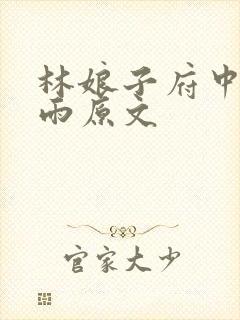 林娘子府中
雨原文
官家大少